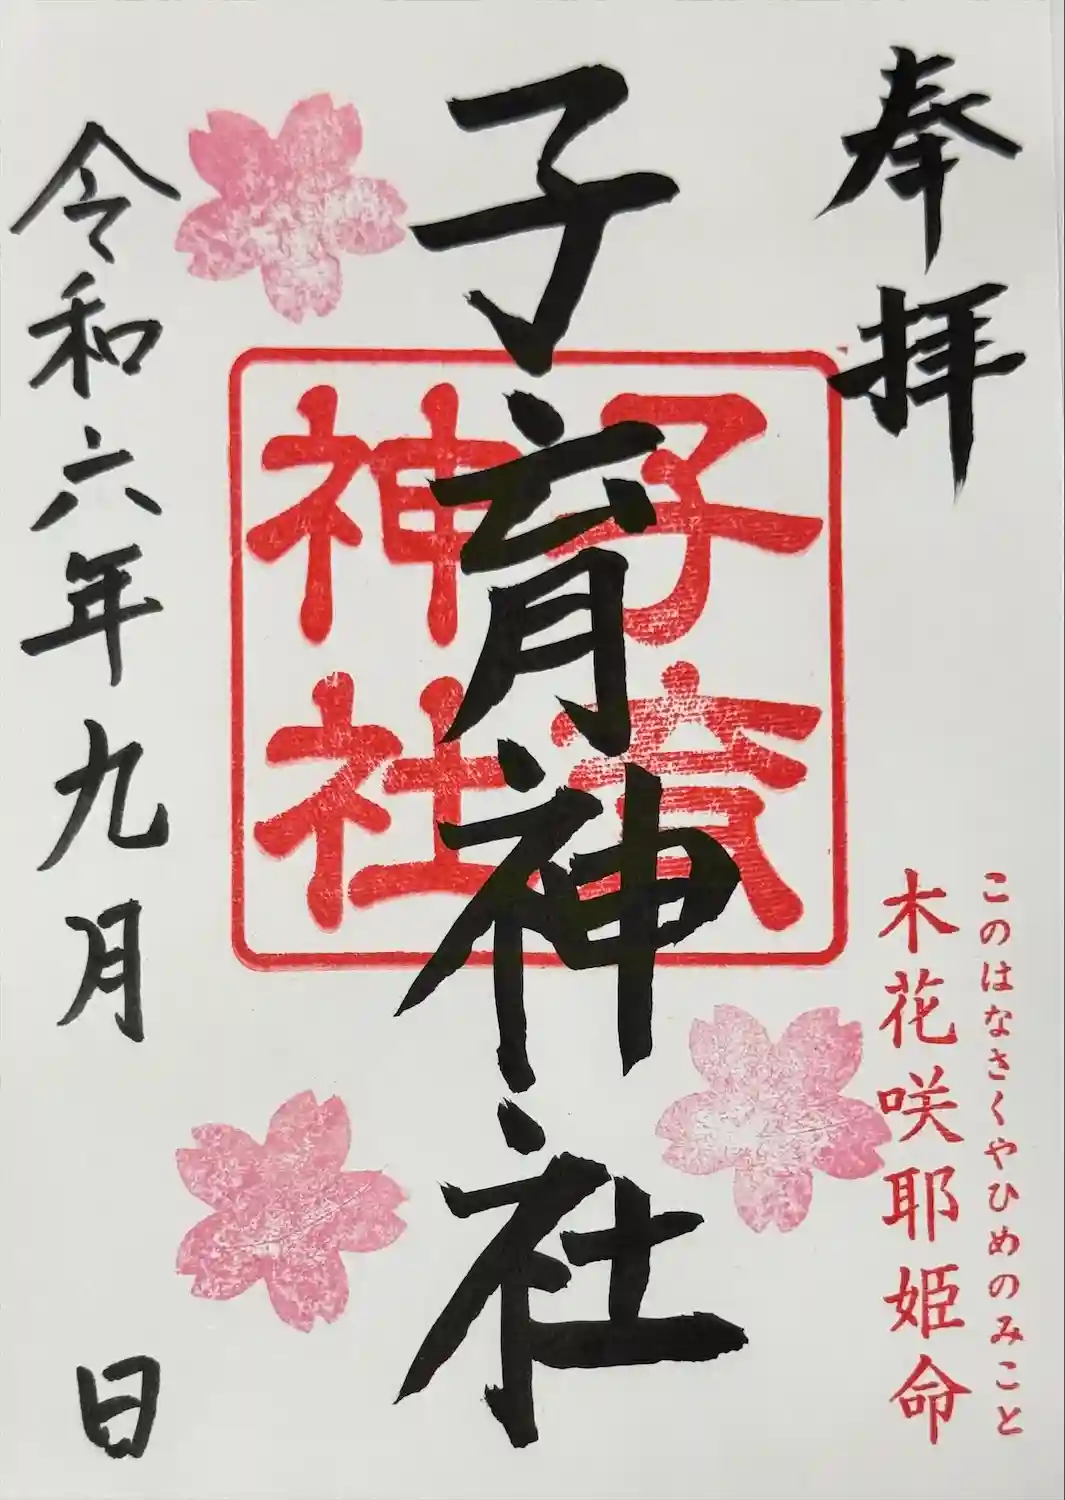 奉拝
このはなさくやひめのみこと
木花咲耶姫命
子育神社
子育
神社
令和六年九月 日